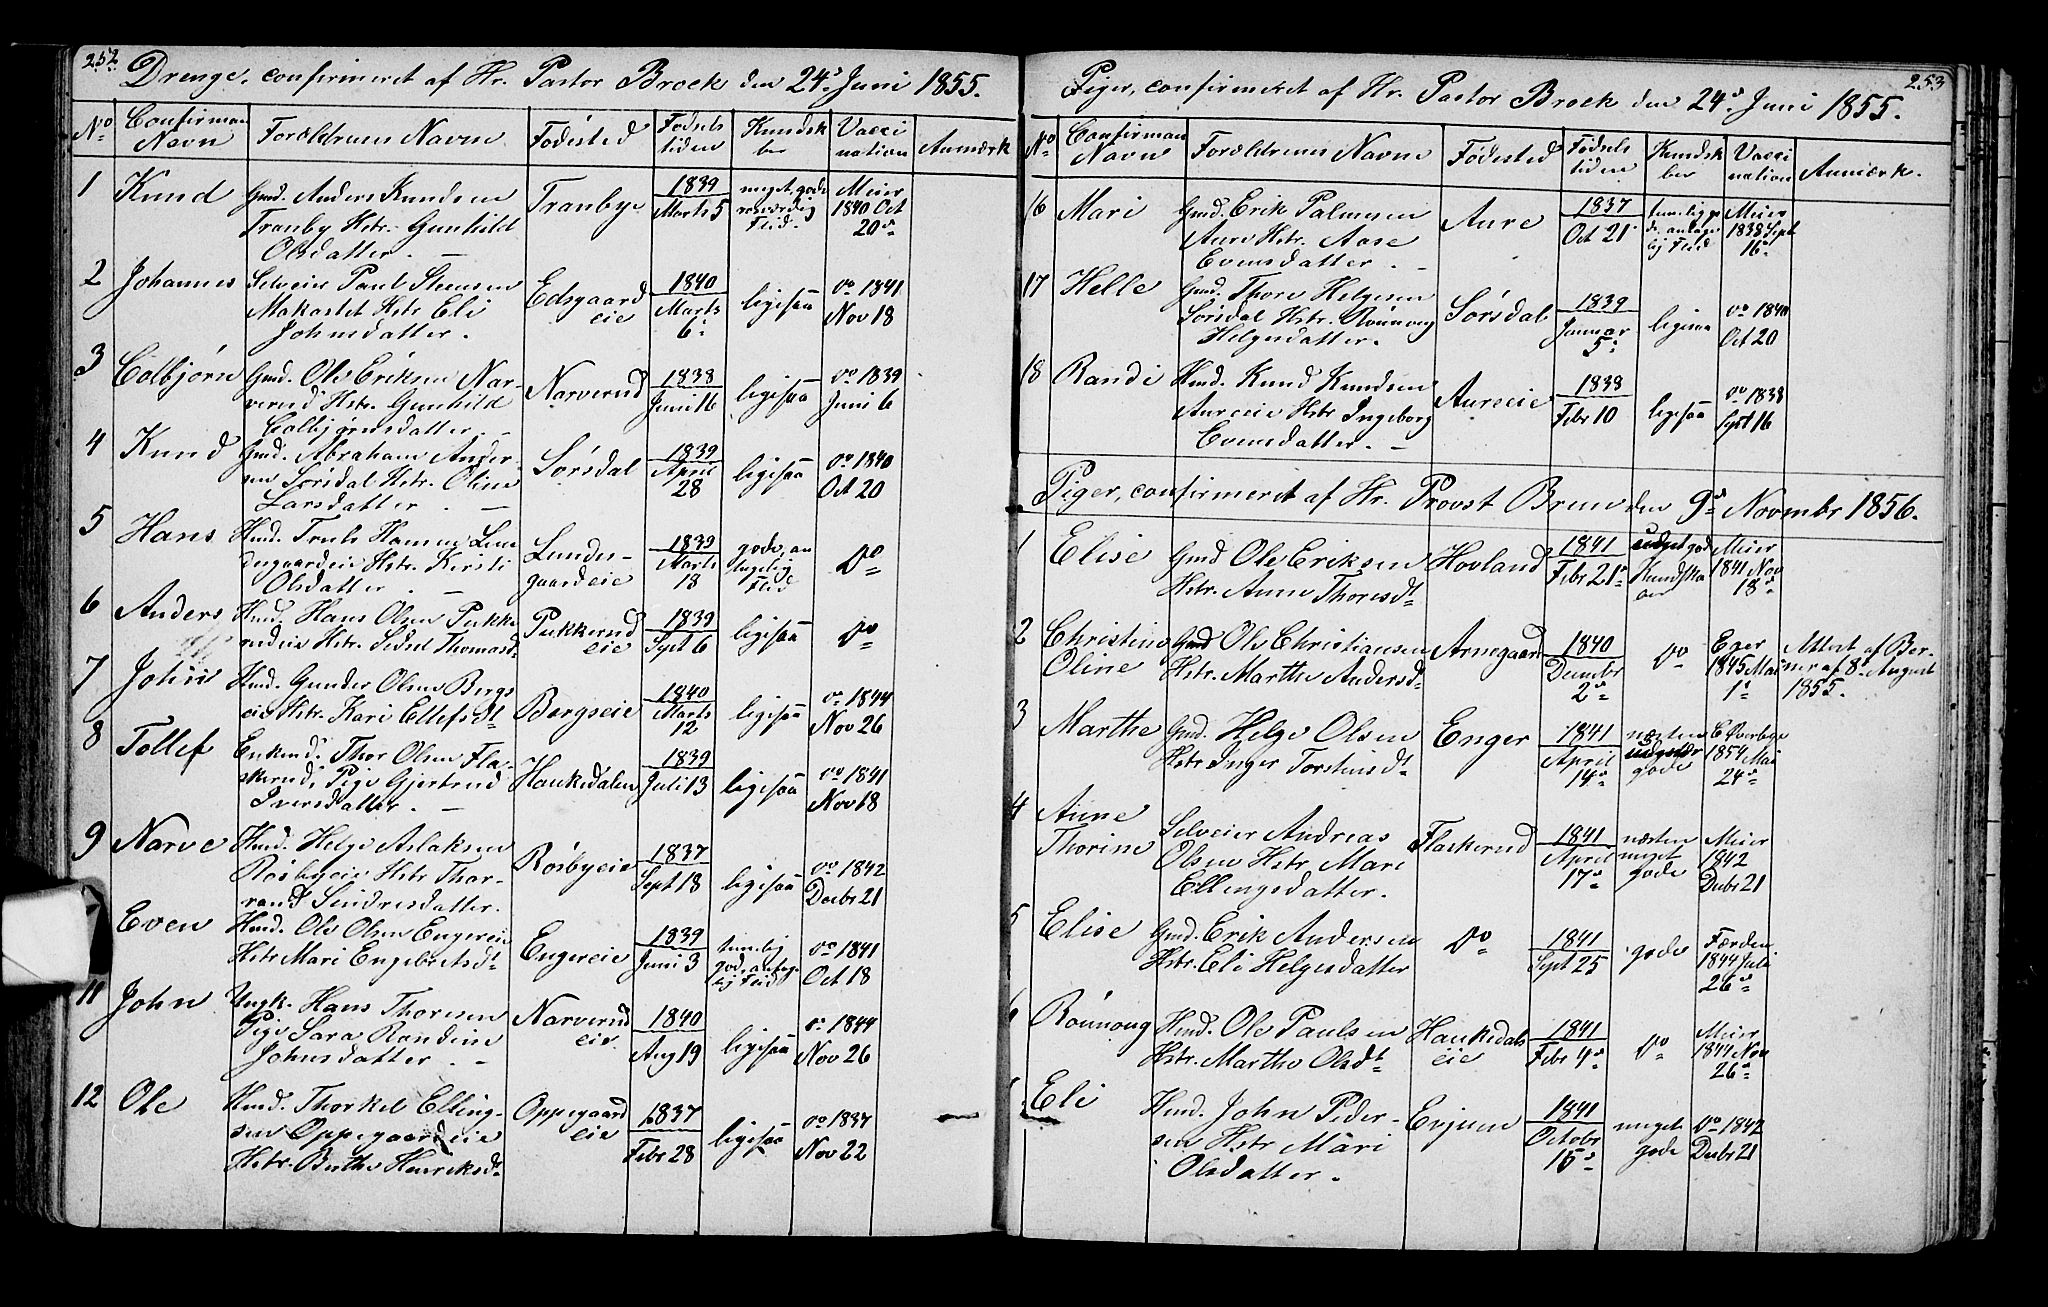 252.
Drenge, confirmeret af Hr. Pastor Brock den 24de Juni 1855.
No Confirman Navn Forældrenes Navn Fødested Fødsels tiden Kundsk ber Vacci nation Anmærk
1 Knud Gmd. Anders Knudsen Tranbye 1839 meget gode Meier
Tranby Hstr. Gunhild Marts 5 1840 Oct
Olsdatter. Flid. 20de
2 Johannes Selveier Paul Steensen Edsgaard 1840 ligesaa do 1841
Makastet Hstr Eli eie Marts Nov 18
Johnsdatter. 6te
3 Colbjørn Gmd. Ole Eriksen Nar- Narverud 1838 ligesaa do 1839
verud Hstr. Gunhild Juni 16 Juni 6
Colbjørnsdatter.
4 Knud Gmd. Abraham Ander- Sørsdal 1839 ligesaa do 1840
sen Sørsdal Hstr. Oline April Oct 20
Larsdatter. 28
5 Hans Hmd. Truls Hansen Lun Lunder- 1839 gode, an do
dergaardeie Hstr. Kirsti gaardeie Marts
Olsdatter. 18 Flid
6 Anders Hmd. Hans Olsen Pukke Pukkerud 1839 ligesaa do
rudeie Hstr. Sidsel Thomasd. eie Sept 6
7 John Hmd. Gunder Olsen Bergs Bergseie 1840 ligesaa do 1844
eie Hstr. Kari Ellefsdt Marts Nov 26
12
8 Tollef Enkemd. Thor Olsen Fla- Haukedalen 1839 ligesaa do 1841
skerud, Pige Gjertrud Juli 13 Nov 18
Iversdatter.
9 Narve Hmd. Helge Aslaksen Røsbyeie 1837 ligesaa do 1842
Røsbyeie Hstr Thor- Sept 18 Decbr 21
rand Sindresdatter.
Even Hmd. Ole Olsen Engereie Engereie 1839 temelig do 1841
Hstr Mari Engebretsdt Juni 3 god, Oct 18
Flid
11 John Ungk. Hans Thoresen Narverud 1840 ligesaa do 1844
Pige Sara Randine eie Aug 19 Nov 26
Johnsdatter.
12 Ole Hmd. Thorkel Elling- Oppegaard 1837 ligesaa do 1837
sen Oppegaardeie eie Febr 28 Nov 22
Hstr. Berthe Henriksdt
253
Piger, confirmeret af Hr. Pastor Brock den 24de Juni 1855.
No Confirman Navn Forældrenes Navne Fødested Fødsels tiden Kundsk ber Vacci nation Anmærk.
16 Mari Gmd. Erik Palmesen Aure 1837 temelig Meier
Aure Hstr. Aase Oct 21 1838 Sept
Evensdatter. Flid 16de
17 Helle Gmd. Thore Helgesen Sørsdal 1839 ligesaa do 1840
Sørsdal Hstr. Rønnoug Januar Oct 20
Helgesdatter. 5te
18 Randi Hmd. Knud Knudsen Aureeie 1838 ligesaa do 1838
Aureeie Hstr Ingeborg Febr 10 Sept 16
Evensdatter.
Piger, confirmeret af Hr. Provst Brun den 9de Novmbr 1856.
1 Elise Gmd Ole Eriksen Hovland 1841 god Meier
Hstr. Anne Thoresdt Febr 21de Kundska 1841 Nov
18de
2 Christine Gmd Ole Christiansen Arnegaard 1840 do Eger Attest af Ber-
Oline Hstr. Marthe Andersdt Decmbr 1845 Mai ner af 8de August
2de 1te 1855.
3 Marthe Gmd. Helge Olsen Enger 1841 næsten C Øverbye
Hstr Inger Torstensdt April gode 1854 Mai
14de 24de
4 Anne Selveier Andreas Flaskerud 1841 næsten Meier
Thorine Olsen Hstr Mari April meget 1842
Ellingsdatter. 17de gode Decbr 21
5 Elise Gmd. Erik Andersen do 1841 gode Færden
Hstr. Eli Helgesdatter Sept 25 1844 Juli
26de
6 Rønnoug Hmd. Ole Paulsen Haukedals 1841 do Meier
Hstr. Marthe Olsdt eie Febr 4de 1844 Nov
26de
Eli Hmd. John Peder- Evjuen 1841 meget do 1842
sen Hstr Mari Octobr gode Decbr 21
Olsdatter. 15de